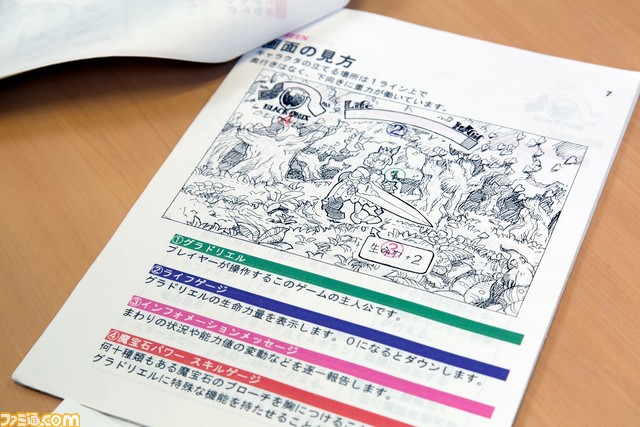 EEN
画面の見方
7
キャラクタの立てる場所は1ライン上で
奥行きはなく、下向きに重力が働いています。
BLACK ONIX
②
①
③
+2
①グラドリエル
プレイヤーが操作するこのゲームの主人公です。
②ライフゲージ
グラドリエルの生命力量を表示します。0になるとダウンします。
③インフォメーションメッセージ
まわりの状況や能力値の変動などを逐一報告します。
④魔宝石パワー スキルゲージ
何十種類もある魔宝石のブローチを胸につけるこ
グラドリエルに特殊な機能を持たせること
ファミ通.com